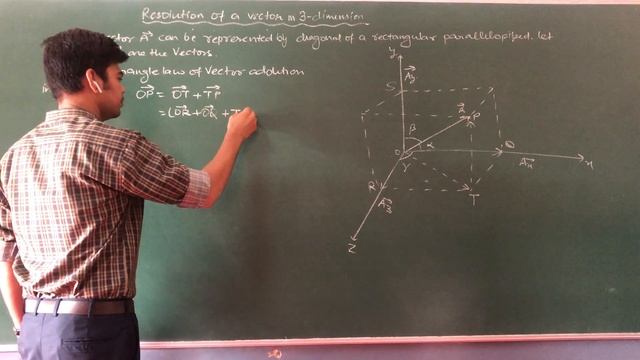 Resolution of a vector in 3-dimension
ctor A⃗ can be represented by diagonal of a rectangular parallelopiped. let
are the Vectors.
angle law of Vector addition
OP⃗ = OT⃗ + TP⃗
= (OR⃗ + OQ⃗ + T
y
A⃗y
S
A⃗ P
β
O α
γ
Q
A⃗x x
R
A⃗z
T
Z